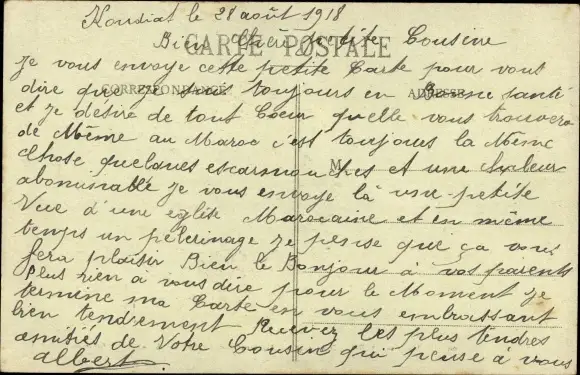 Koudiat le 28 août 1918
Bien Chère petite Cousine
CARTE POSTALE
Je vous envoye cette petite Carte pour vous
CORRESPONDANCE
ADRESSE
dire que je suis toujours en Bonne santé
et je désire de tout Coeur quelle vous trouvera
de Même au Maroc c'est toujours la Meme
M
Chose quelques escarmouches et une
abominable je vous envoye là une petite
Vue d'une église Marocaine et en même
temps un pélerinage je pense que ça vous
fera plaisir Bien le Bonjour à vos parents
Plus rien à vous dire pour le Moment je
termine ma Carte en vous embrassant
bien tendrement Recevez les plus tendres
amitiés de Votre Cousin qui pense à vous
albert